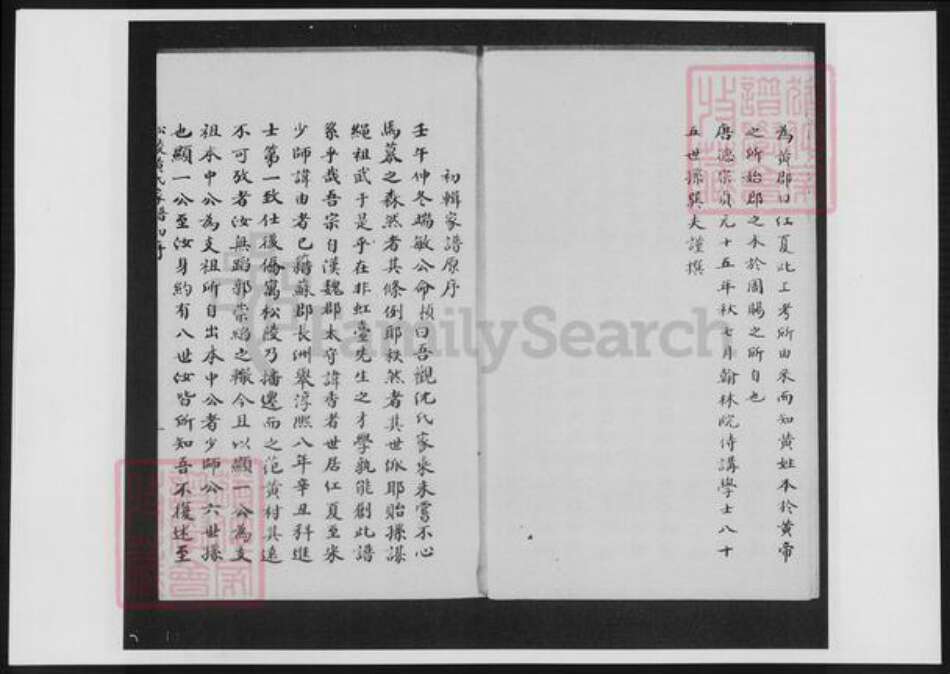 為黃郡曰江夏此上考所由來而知黃姓本於黃帝
之所始郡之本於國賜之所自也
唐德宗貞元十五年秋七月翰林院侍講學士八十
五世孫巽夫謹撰
初輯家譜原序
壬午仲冬端敏公命楨曰吾觀沈氏家乘未嘗不心
馬慕之森然者其條例耶秩然者其世派耶貽孫謀
繩祖武于是乎在非虹臺先生之才學孰能創此譜
乘乎哉吾宗自漢魏郡太守諱香者世居江夏至宋
少師諱由者已籍蘇郡長洲舉淳熙八年辛丑科進
士第一致仕後僑寓松陵乃播遷而之范黃村其遠
不可攷者汝無蹈郭崇韜之轍今且以顯一公為支
祖本中公為支祖所自出本中公者少師公六世孫
也顯一公至汝身約有八世汝皆所知吾不復述至
松陵黃氏家譜初序
FamilySearch